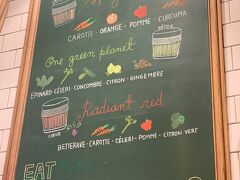 CAROTTE - ORANGE - POMME - CURCUMA
One green planet
ÉPINARD-CÉLERI-CONCOMBRE-CITRON-GINGEMBRE
Radiant red
BETTERAVE-CAROTTE-CÉLERI-POMME-CITRON VERT
EAT